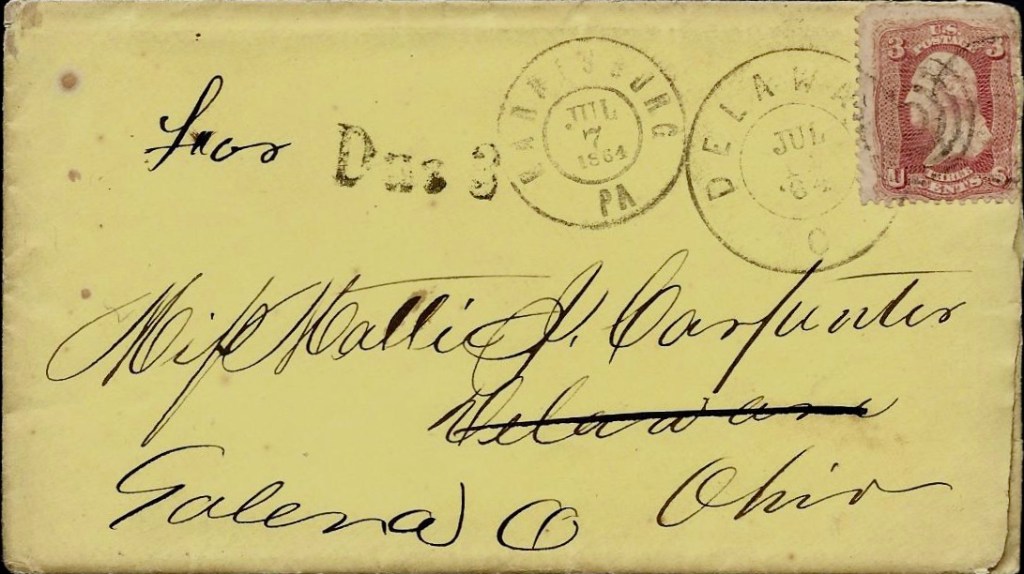 HARRISBURG
JUL
7
1864
PA
DELAWA
JUL
64
O
U.S. POSTAGE
3 3
U THREE CENTS S
Due 3
Miſs Mattie J. Carpenter
Delaware
Ohio
Galena O